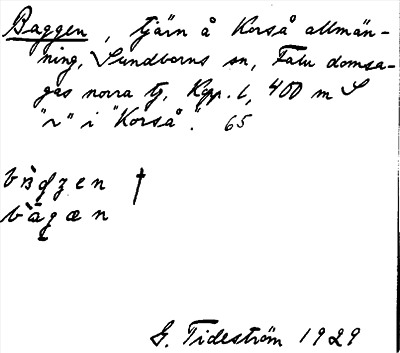 Baggen, tjärn å Korså allmän-
ning, Sundborns sn, Falu domsa-
gas norra tg, Kopp. l, 400 m S
"r" i "Korså". 65
†
bàgæn
G. Tideström 1929